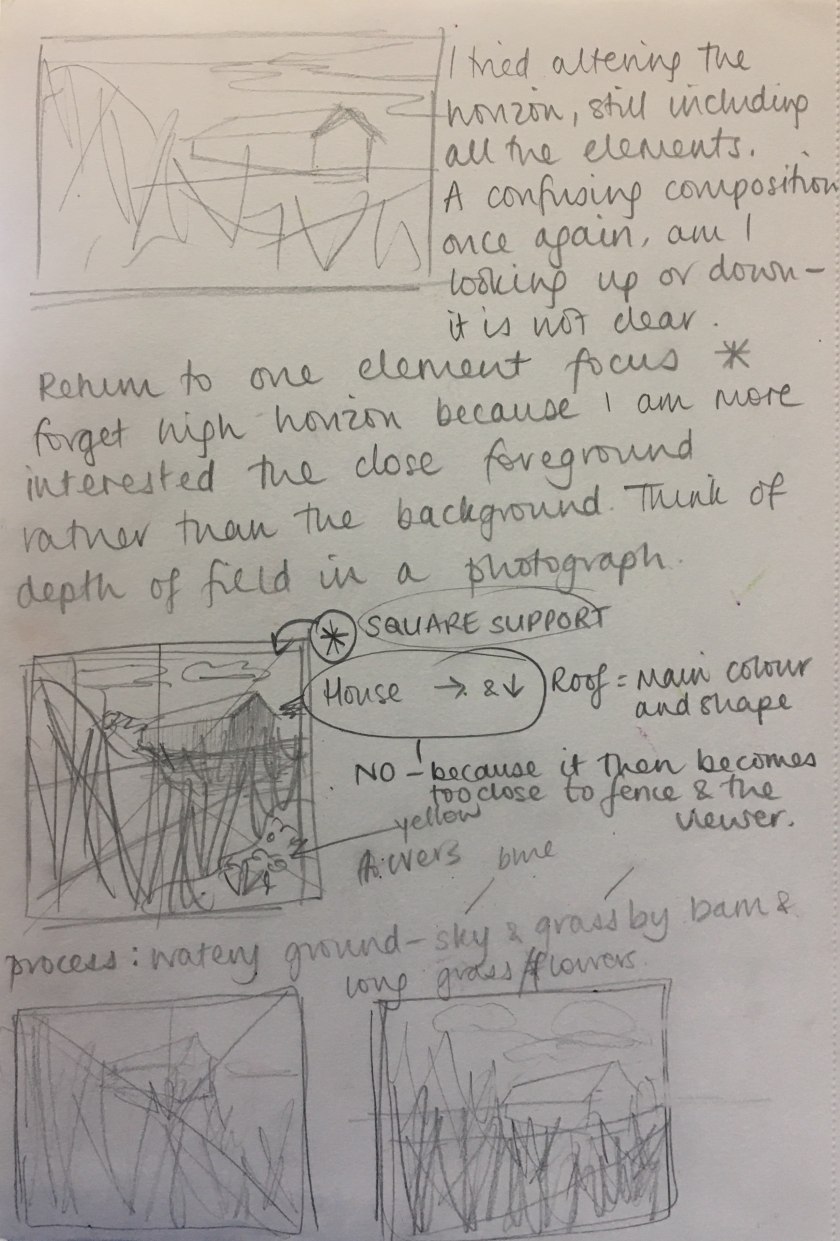 I tried altering the
horizon, still including
all the elements.
A confusing composition
once again, am I
looking up or down -
it is not clear.
Return to one element focus *
forget high horizon because I am more
interested the close foreground
rather than the background. Think of
depth of field in a photograph.
* SQUARE SUPPORT
House → & ↓ Roof = main colour
and shape
NO - because it then becomes
too close to fence & the
viewer.
yellow
flowers blue
process: watery ground - sky & grass by barn &
long grass/flowers.